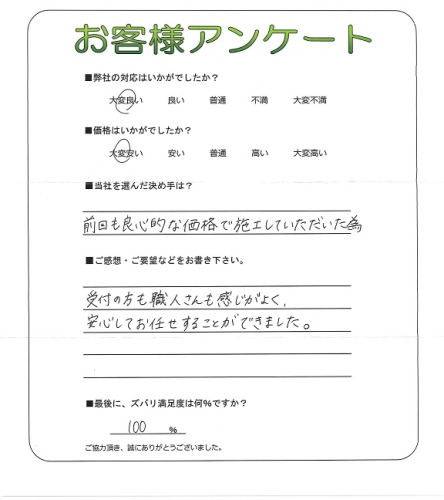 お客様アンケート
■弊社の対応はいかがでしたか？
大変良い 良い 普通 不満 大変不満
■価格はいかがでしたか？
大変安い 安い 普通 高い 大変高い
■当社を選んだ決め手は？
前回も良心的な価格で施工していただいた為
■ご感想・ご要望などをお書き下さい。
受付の方も職人さんも感じがよく、
安心してお任せすることができました。
■最後に、ズバリ満足度は何%ですか？
100 %
ご協力頂き、誠にありがとうございました。